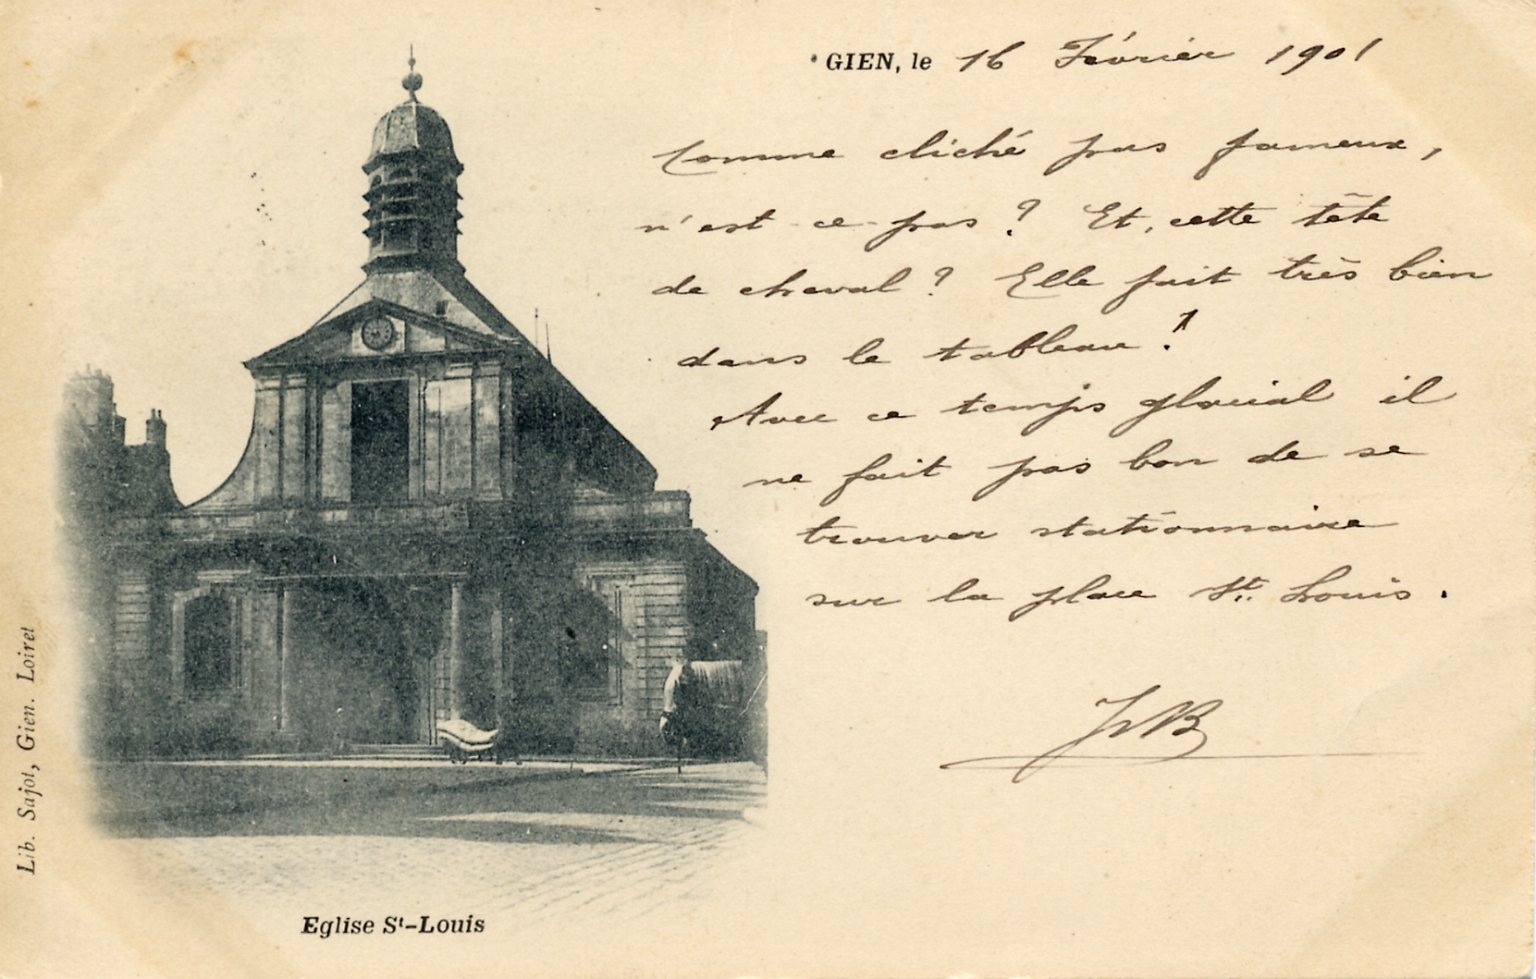 GIEN, le 16 Février 1901
Comme cliché pas fameux,
n'est-ce-pas ? Et, cette tête
de cheval ? Elle fait très bien
dans le tableau !
Avec ce temps glacial il
ne fait pas bon de se
trouver stationnaire
sur la place St. Louis.
Lib. Sajot, Gien. Loiret
Eglise St-Louis